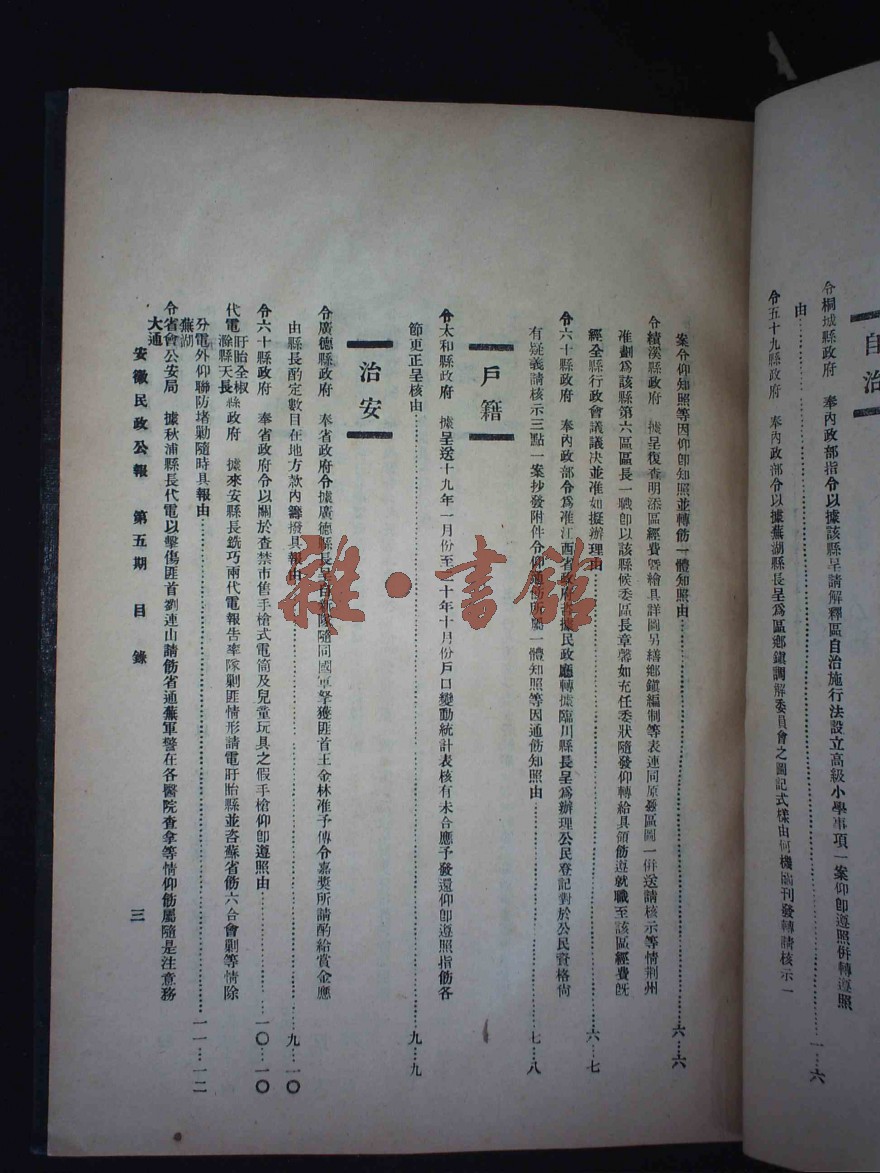 自治
令桐城縣政府　奉內政部指令以據該縣呈請解釋區自治施行法設立高級小學事項一案仰卽遵照併轉遵照
由……一…六
令五十九縣政府　奉內政部令以據蕪湖縣長呈爲區鄉鎮調解委員會之圖記式樣由何機關刊發轉請核示一
案令仰知照等因仰卽知照並轉飭一體知照由……六…六
令績溪縣政府　據呈復查明添區經費暨繪具詳圖另繕鄉鎮編制等表連同原發區圖一併送請核示等情荆州
准劃爲該縣第六區區長一職卽以該縣候委區長章馨如充任委狀隨發仰轉給具領飭遵就職至該區經費旣
經全縣行政會議議決並准如擬辦理由……六…七
令六十縣政府　奉內政部令爲准江西省政府咨據民政廳轉據臨川縣長呈爲辦理公民登記對於公民資格尙
有疑義請核示三點一案抄發附件令仰通飭所屬一體知照等因通飭知照由……七…八
戶籍
令太和縣政府　據呈送十九年一月份至二十年十月份戶口變動統計表核有未合應予發還仰卽遵照指飭各
節更正呈核由……九…九
治安
令廣德縣政府　奉省政府令據廣德縣長呈自新隊隨同國軍拏獲匪首王金林准予傳令嘉奬所請酌給賞金應
由縣長酌定數目在地方款內籌撥具報由……九…一〇
令六十縣政府　奉省政府令以關於查禁市售手槍式電筒及兒童玩具之假手槍仰卽遵照由……一〇…一〇
代電盱眙全椒滁縣天長縣政府　據來安縣長銑巧兩代電報告率隊剿匪情形請電盱眙縣並咨蘇省飭六合會剿等情除
分電外仰聯防堵勦隨時具報由……一一…一二
令省會蕪湖大通公安局　據秋浦縣長代電以擊傷匪首劉連山請飭省通蕪軍警在各醫院查拿等情仰飭屬隨是注意務
安徽民政公報　第五期　目錄
三
雜·書館